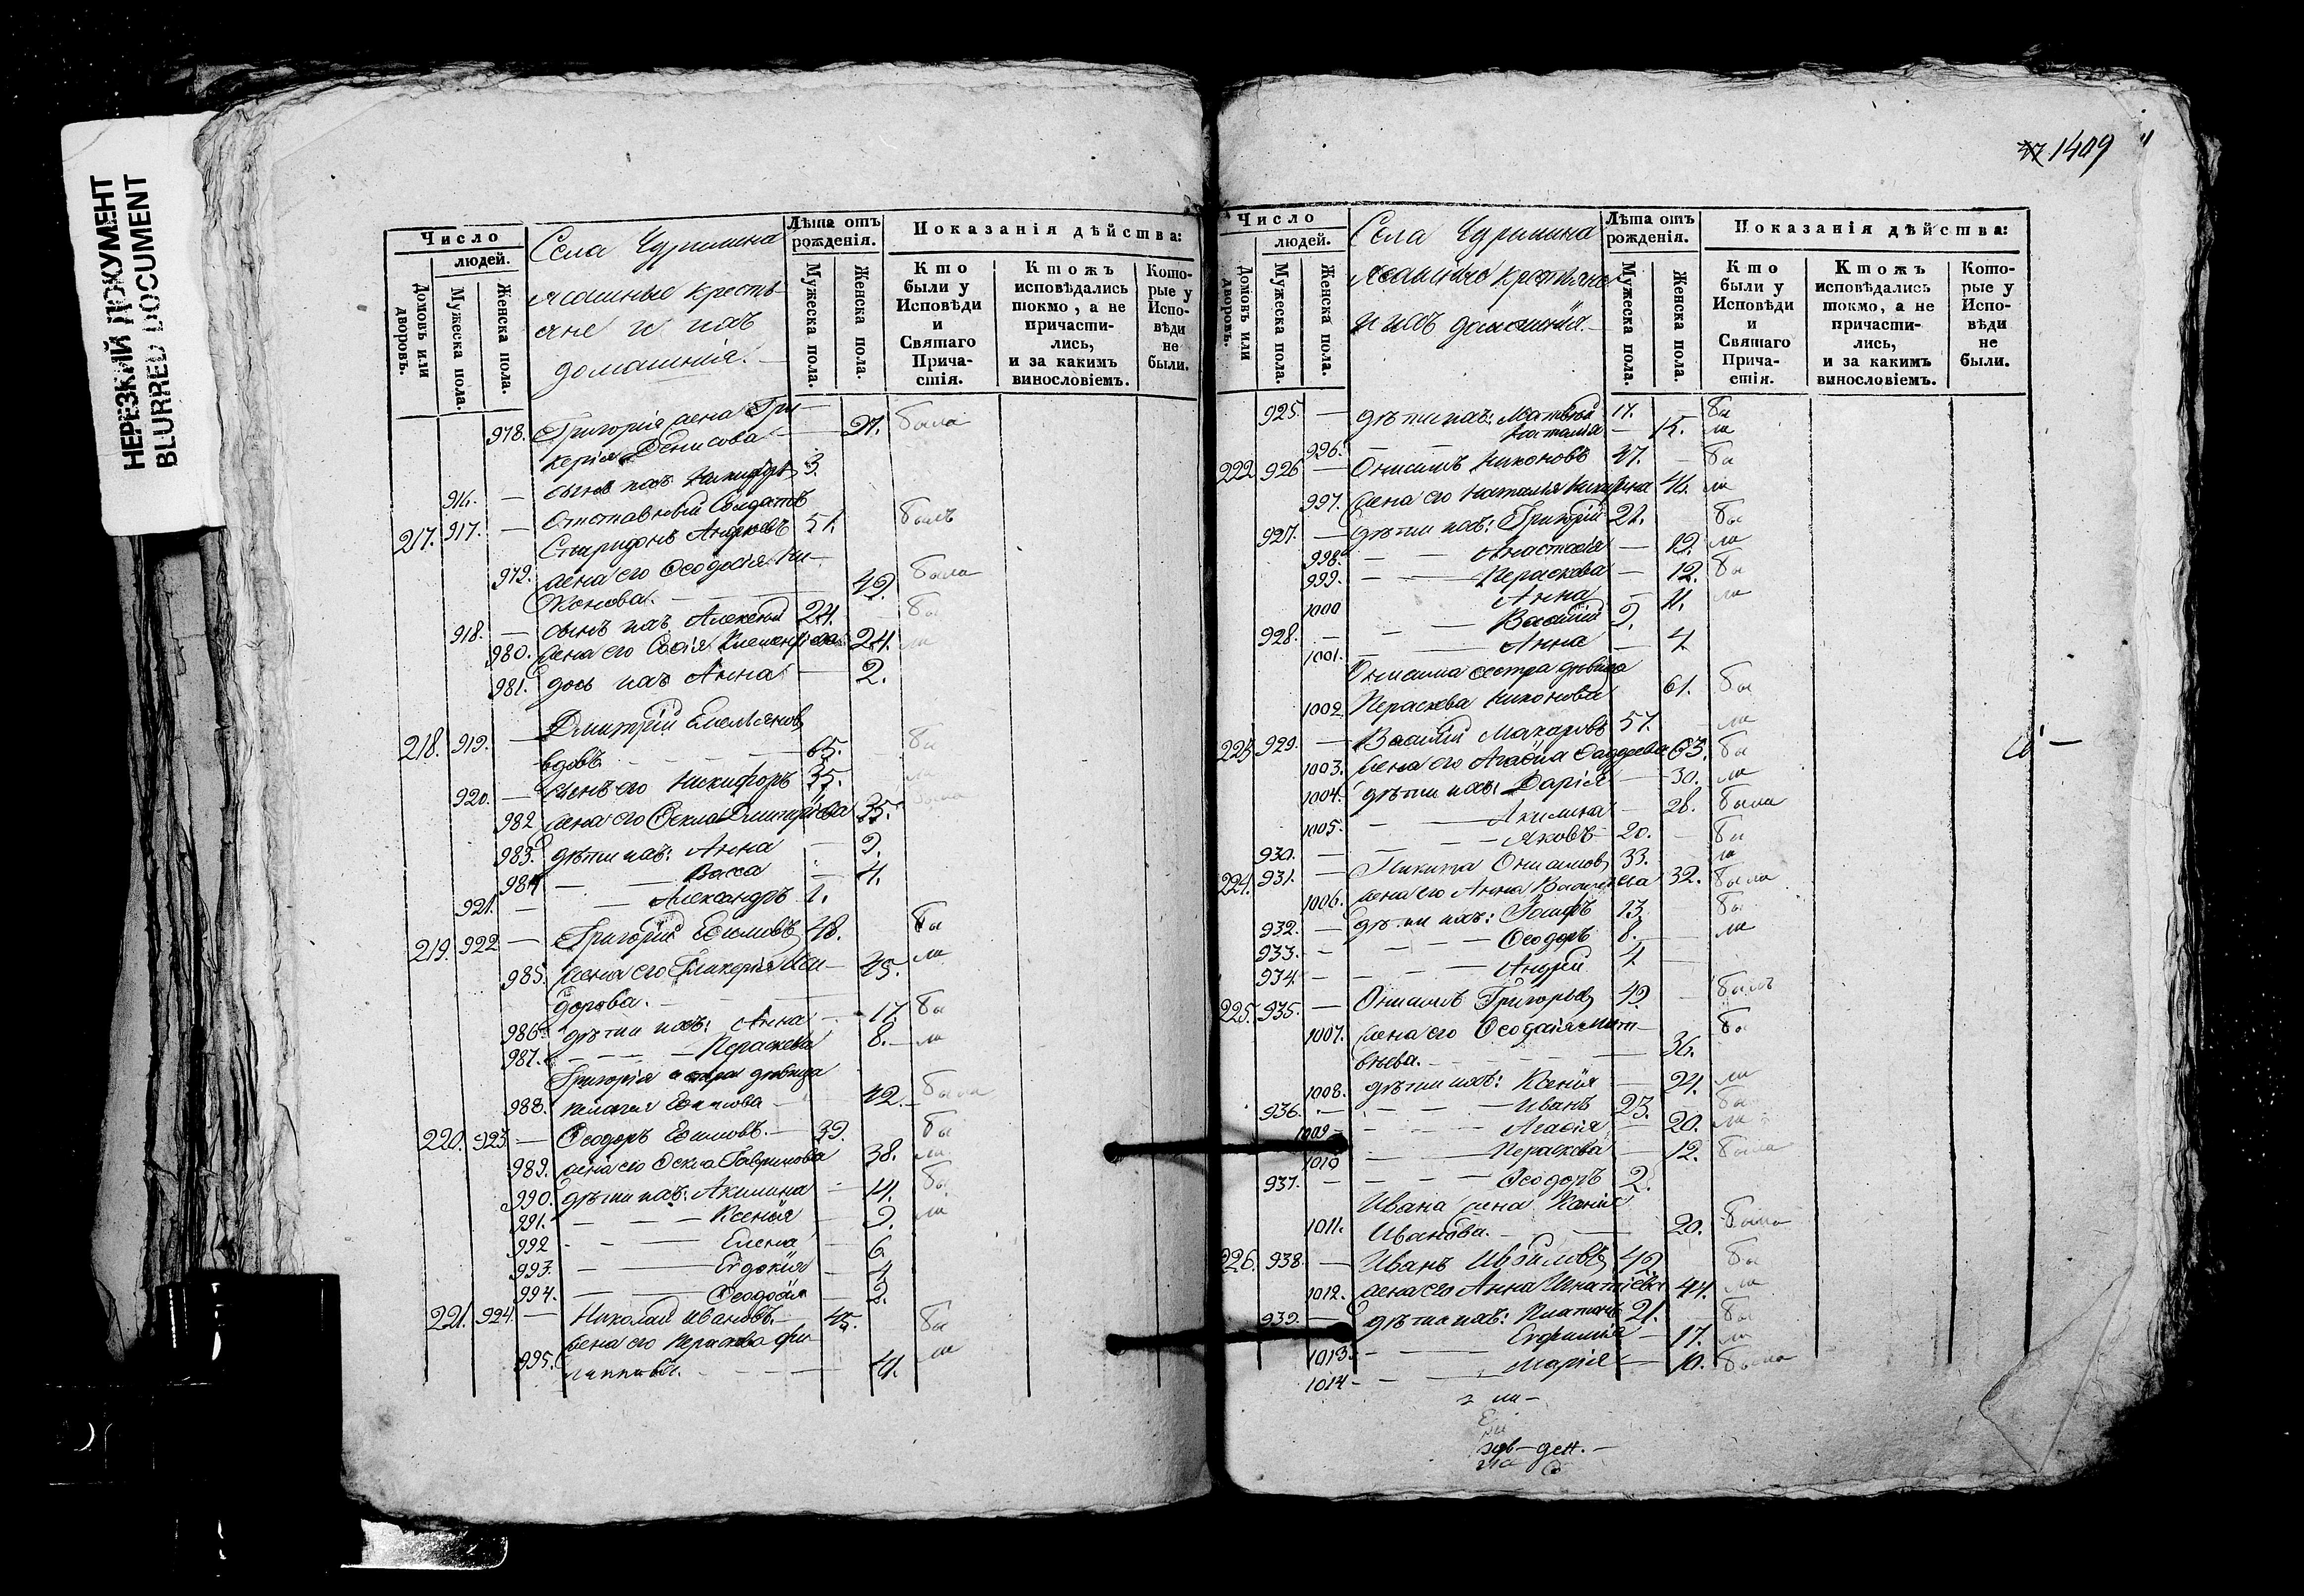 НЕРЕЗКИЙ ДОКУМЕНТ
BLURRED DOCUMENT
Число
людей.
Домовъ или дворовъ.
Мужеска пола.
Женска пола.
Села Чуришина
ясашные кресть-
яне и ихъ
домашнія.
Лѣта отъ рожденія.
Мужеска пола.
Женска пола.
Показанія дѣйства:
Кто были у Исповѣди и Святаго Прича- стія.
Ктожъ исповѣдались токмо, а не причасти- лись, и за какимъ винословіемъ.
Кото- рые у Испо- вѣди не были.
978. Григорія жена Гли-
керія Денисова — 27. была
916. — сынъ ихъ Никифоръ 3.
Отставный Солдатъ
217. 917. — Спиридонъ Андреевъ 51. былъ
979. жена его Ѳеодосія Ни-
конова. — 49. была
918. — сынъ ихъ Алексѣй 24. бы
980. жена его Софія 24. ли
981. дочь ихъ Анна — 2.
Дмитрій Емельяновъ
218. 919. — вдовъ 65. бы
920. — сынъ его Никифоръ 35. ли
982 жена его Ѳекла Дмитріева 35. была
983. дѣти ихъ: Анна — 9.
984 — Васса — 4.
921. — Александръ 1.
219. 922 — Григорій Ефимовъ 48. бы
985. жена его Гликерія Иси- 45. ли
дорова.
986. дѣти ихъ: Анна — 17. бы
987. — Параскева 8. — ли
Григорія сестра дѣвица
988. Пелагея Ефимова — 42. была
220. 923. — Ѳеодоръ Ефимовъ. — 39. бы
989. жена его Ѳекла Гаврилова 38. ли
990. дѣти ихъ: Акилина — 14. бы
991. — Ксенія — 9. ли
992 — Елена — 6
993. — Евдокія — 4
994. — Ѳеодосія — 2.
221. 924. — Николай Ивановъ. — 45. бы
995. жена его Параскева Фи-
липпова. — 41. ли
1409
Число
людей.
Домовъ или дворовъ.
Мужеска пола.
Женска пола.
Села Чуришина
ясашные крестьяне
и ихъ домашнія.
Лѣта отъ рожденія.
Мужеска пола.
Женска пола.
Показанія дѣйства:
Кто были у Исповѣди и Святаго Прича- стія.
Ктожъ исповѣдались токмо, а не причасти- лись, и за какимъ винословіемъ.
Кото- рые у Испо- вѣди не были.
925. — дѣти ихъ: Матвей 17. бы
996. — Наталія — 15. ли
222 926 — Онисимъ Никоновъ 47. — бы
997. жена его Наталья 46. ли
927. — дѣти ихъ: Григорій 21. бы
998. — Анастасія — 19. ли
999. — Параскева — 12. бы
1000 Анна — 11. ли
928. — Василій 9.
1001. — Анна — 4
Онисима сестра дѣвица
1002 Параскева Никонова 61. бы
223 929. — Василій Макаровъ 57. — ли
1003. жена его Агафія Фаддеева 63. бы
1004. дѣти ихъ: Дарія — 30. ли
1005. — Акилина — 28. была
930. — Яковъ — 20. — бы
224. 931. — Никита Онисимовъ 33. ли
1006. жена его Анна Васильева 32. была
932. — дѣти ихъ: Іосифъ 13. бы
933. — Ѳеодоръ 8. — ли
934 — Андрей 4 —
225. 935. — Онисимъ Григорьевъ 49. — былъ
1007. жена его Ѳеодосія Мат- бы
вѣева. — 36.
1008. дѣти ихъ: Ксенія — 24. ли
936. — Иванъ 23. бы
1009 — Агафія — 20. ли
1010 — Параскева — 12. была
937. — Ѳеодоръ 2.
Ивана жена Ксенія
1011. Иванова. — 20. была
226. 938. — Иванъ 49. бы
1012. жена его Анна Игнатіева 44. ли
939. — дѣти ихъ: Платонъ 21. бы
1013 — Евфимія — 17. ли
1014 — Марія — 10. была